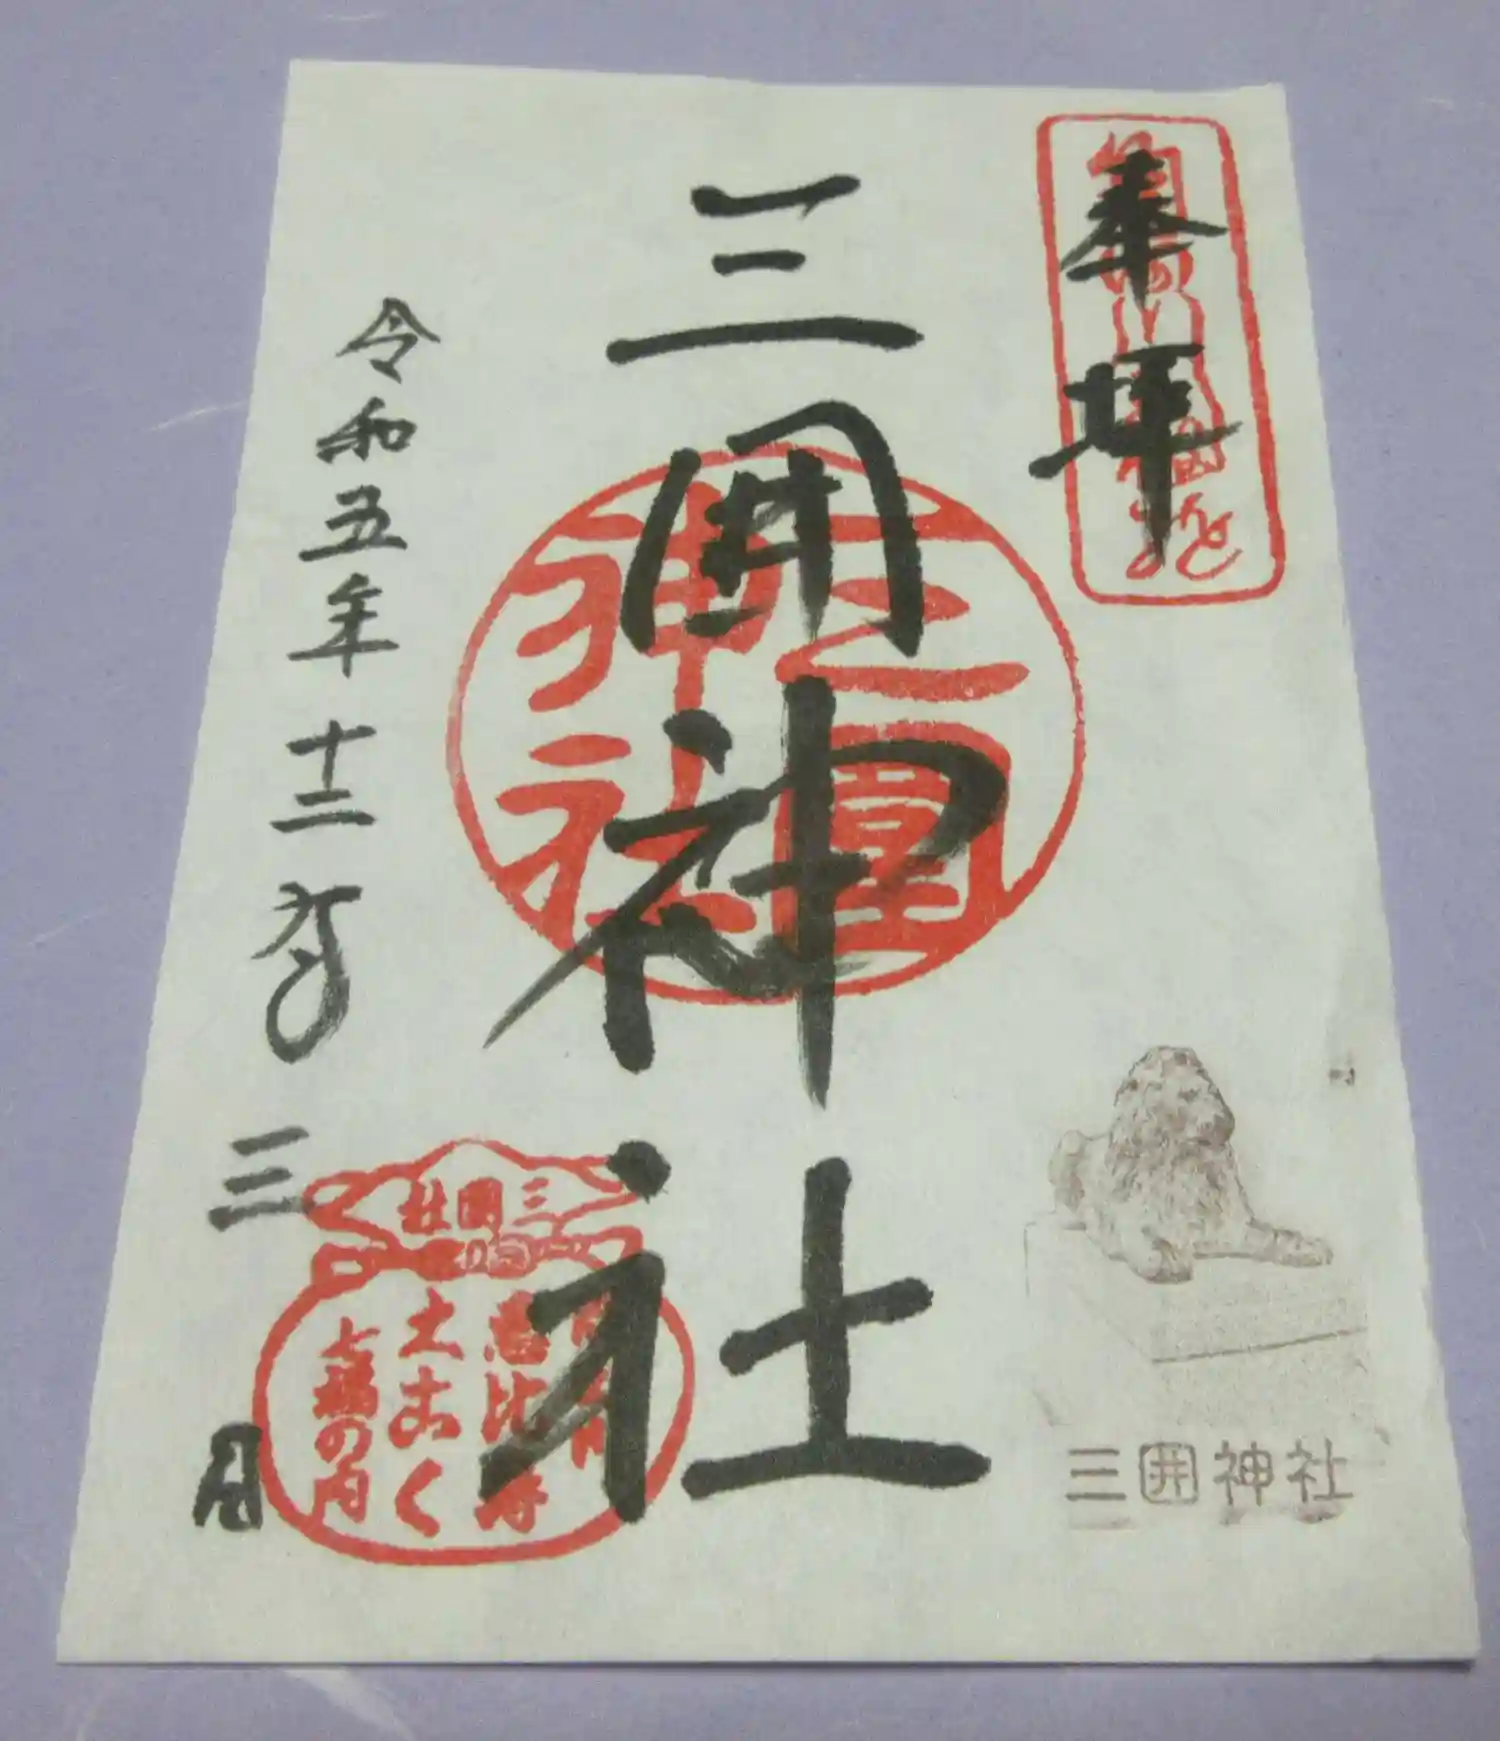 奉拝
三囲神社
令和五年十二月三日
三囲神社
三囲社
恵比寿
大こく
七福の内
三囲神社